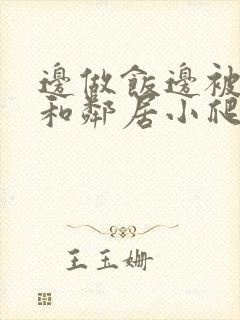 邊做飯邊被
和鄰居小爬
王玉姍